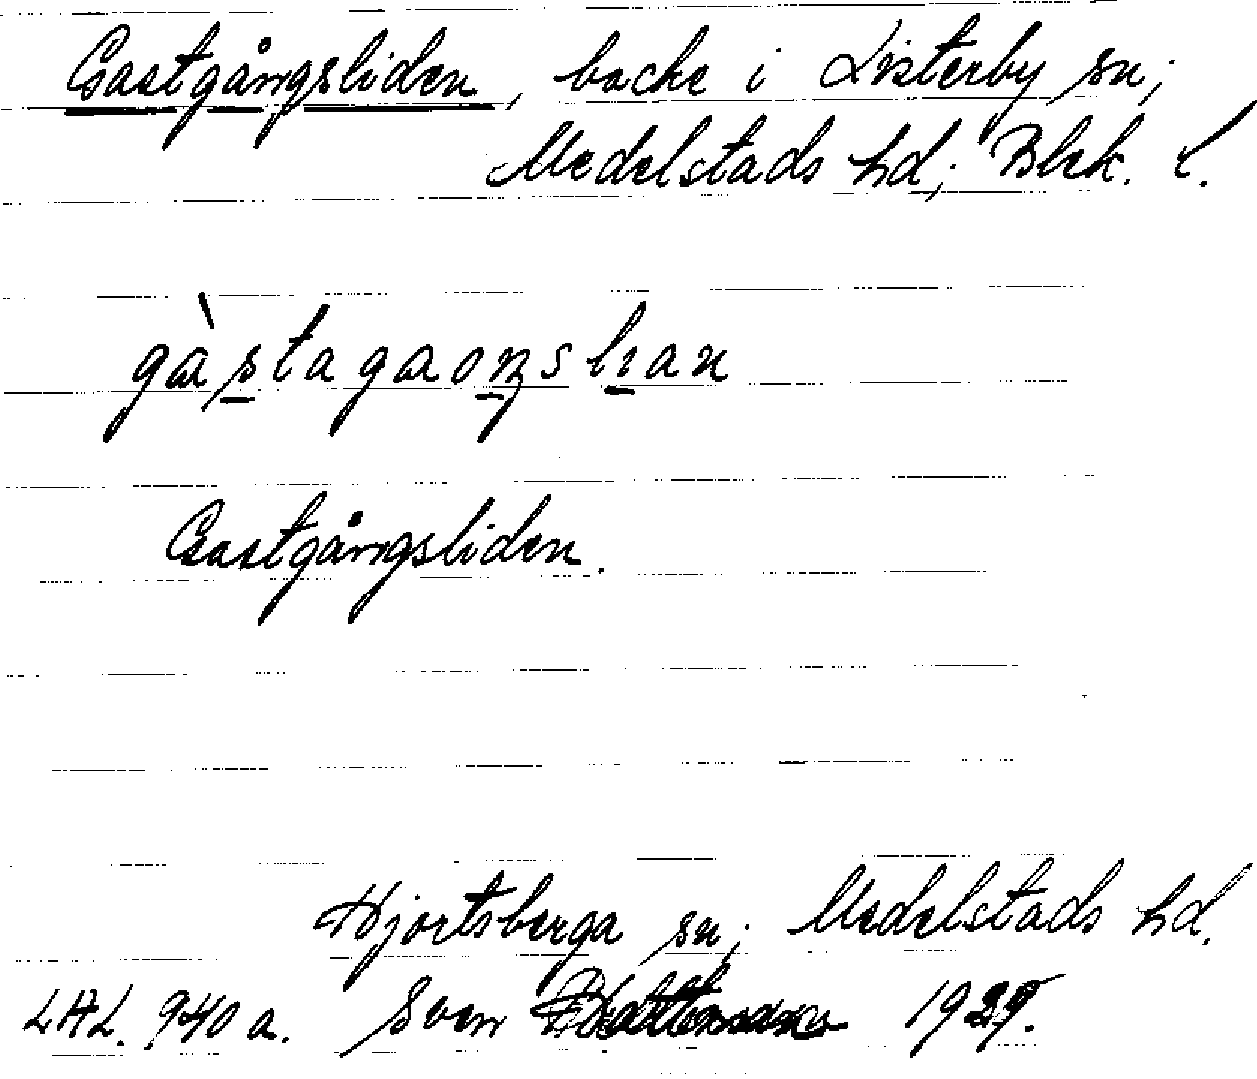 Gastgångsliden, backe i Listerby sn;
Medelstads hd; Blek. l.
gàstagaoŋslıan
Gastgångsliden.
Hjortsberga sn; Medelstads hd.
LAL. 940 a. Sven 1929.